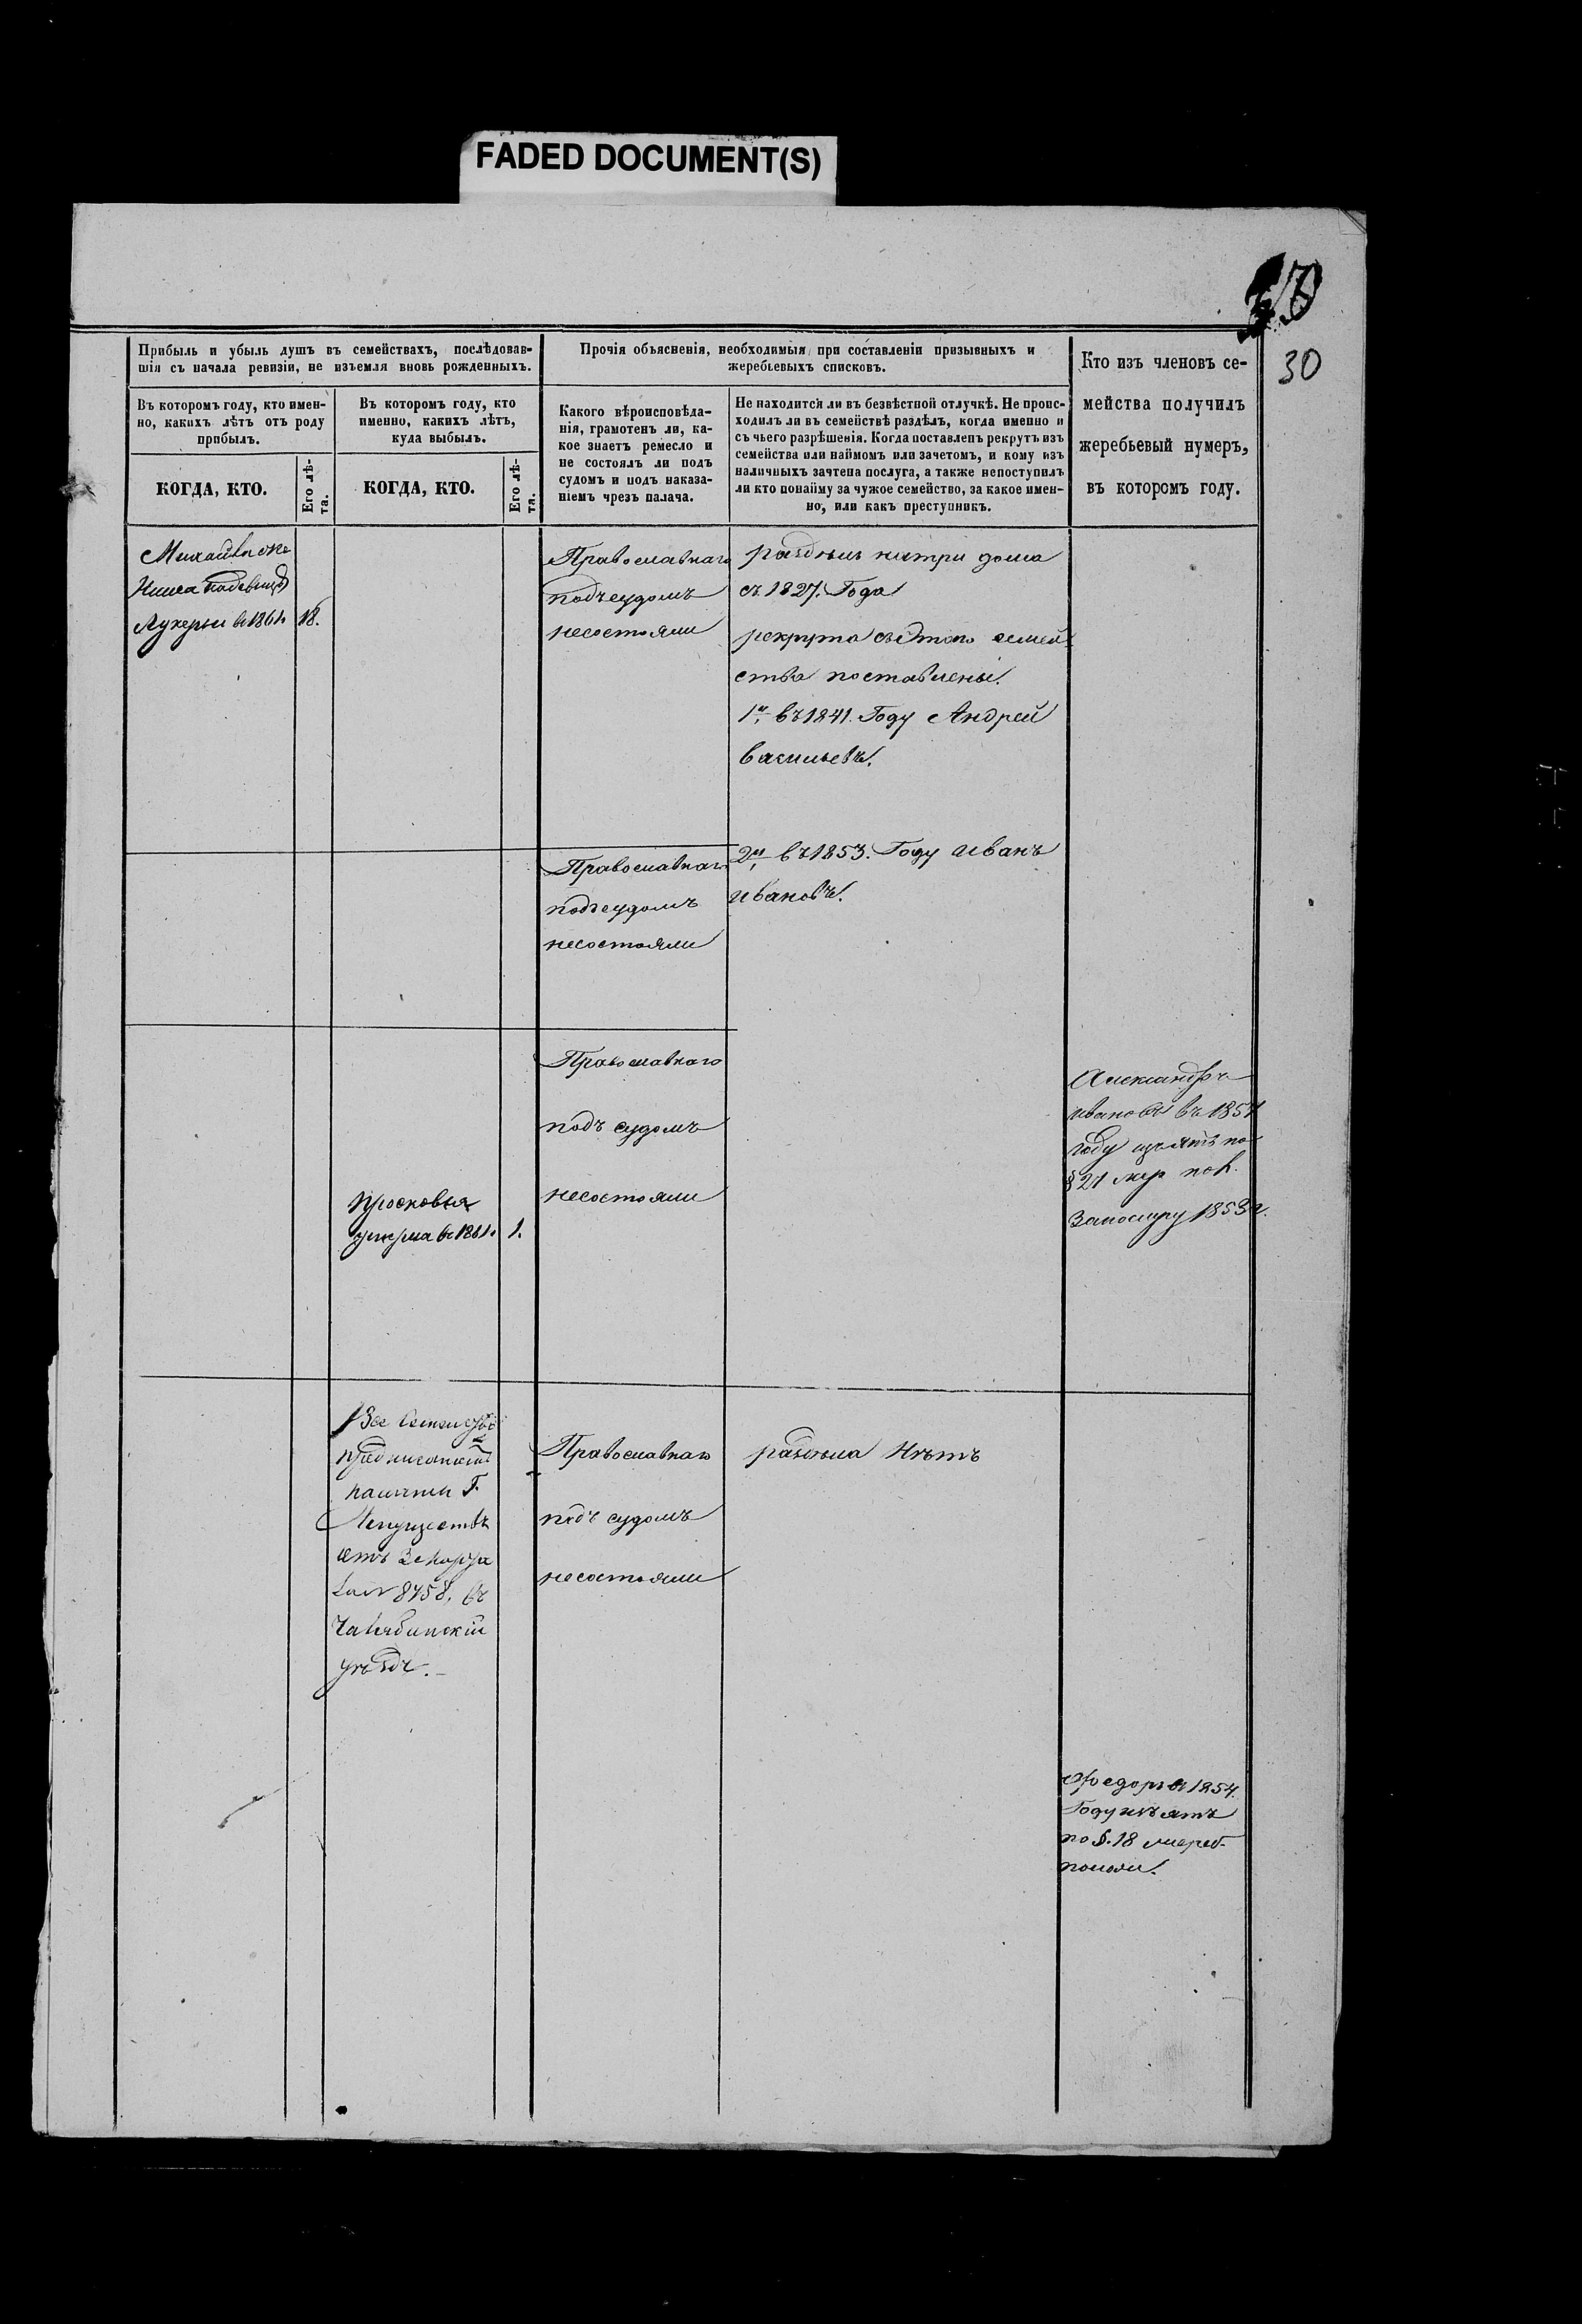 FADED DOCUMENT(S)
30
Прибыль и убыль душъ въ семействахъ, послѣдовав-
шія съ начала ревизіи, не изъемля вновь рожденныхъ.
Въ которомъ году, кто имен-
но, какихъ лѣтъ отъ роду
прибылъ.
КОГДА, КТО.
Его лѣ-
та.
Въ которомъ году, кто
именно, какихъ лѣтъ,
куда выбылъ.
КОГДА, КТО.
Его лѣ-
та.
Прочія объясненія, необходимыя при составленіи призывныхъ и
жеребьевыхъ списковъ.
Какого вѣроисповѣда-
нія, грамотенъ ли, ка-
кое знаетъ ремесло и
не состоялъ ли подъ
судомъ и подъ наказа-
ніемъ чрезъ палача.
Не находится ли въ безвѣстной отлучкѣ. Не проис-
ходилъ ли въ семействѣ раздѣлъ, когда именно и
съ чьего разрѣшенія. Когда поставленъ рекрутъ изъ
семейства или наймомъ или зачетомъ, и кому изъ
наличныхъ зачтена послуга, а также непоступилъ
ли кто понайму за чужое семейство, за какое имен-
но, или какъ преступникъ.
Кто изъ членовъ се-
мейства получилъ
жеребьевый нумеръ,
въ которомъ году.
Михайла
Лукерьи в 1861. 18.
Православнаго
подъ судомъ
несостояли
раздѣлъ натри дома
съ 1827. Года
рекрута съ этого семей-
ства поставлены.
1й въ 1841. Году Андрей
васильевъ.
2й въ 1853. Году иванъ
ивановъ.
Православнаго
подъ судомъ
несостояли
Православнаго
подъ судомъ
несостояли
Просковья
умерла в 1861. 1.
Александръ
ивановъ въ 1857
году изъятъ по
§ 21
1853 г.
Все
Г.
8758, въ
Челябинскій
уѣздъ.
Православнаго
подъ судомъ
несостояли
раздѣла Нѣтъ
Федоръ в 1854.
Году изъятъ
по §. 18